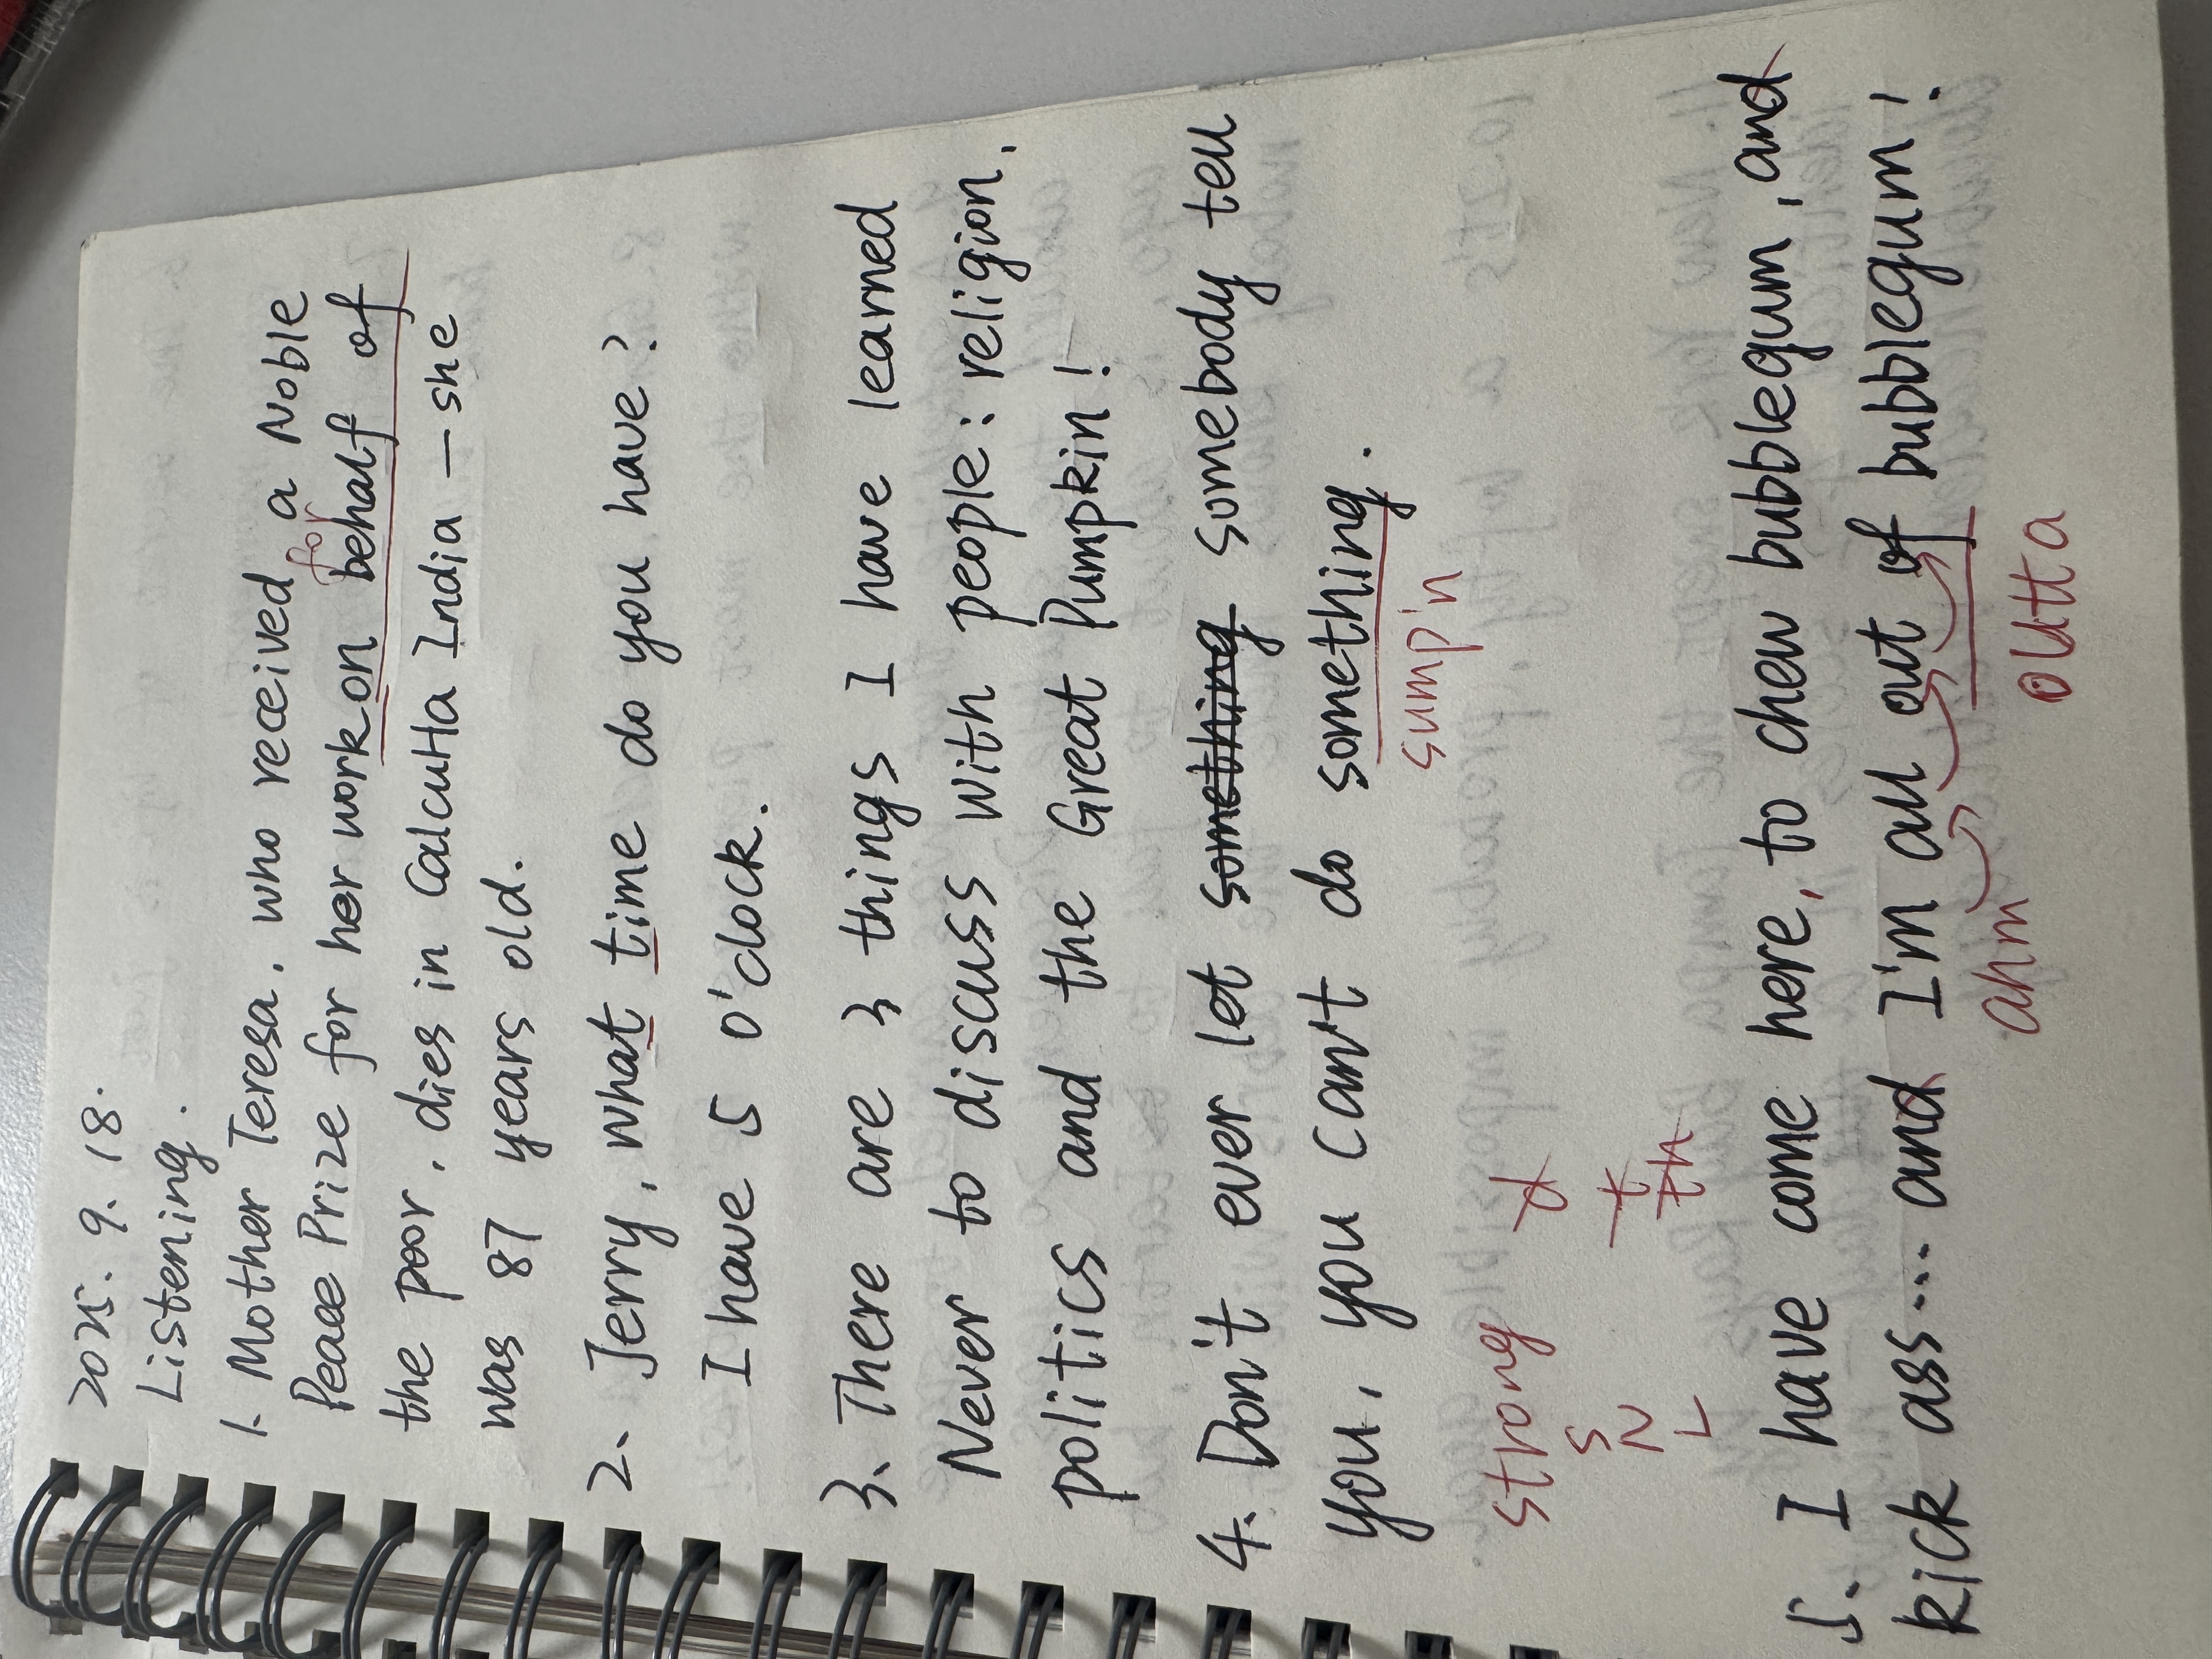 2025. 9. 18.
Listening.
1. Mother Teresa, who received a Noble
for
Peace Prize for her work on behalf of
the poor, dies in Calcutta India — she
was 87 years old.
2、 Jerry, what time do you have?
I have 5 o'clock.
3、 There are 3 things I have learned
Never to discuss with people: religion,
politics and the Great Pumpkin!
4. Don't ever let something somebody tell
you, you can't do something.
sump'n
strong d
S
N t
L th
5. I have come here, to chew bubblegum, and
kick ass... and I'm all out of bubblegum!
ahm outta